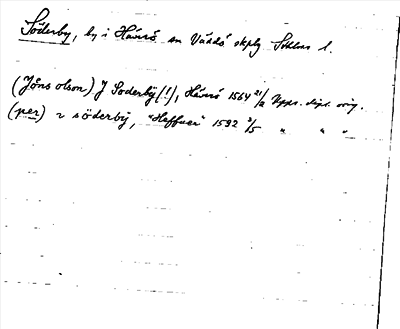 Söderby, by i Häverö sn Väddö skplg Sthlms l.
(Jöns olson) J Soderbÿ (!), Häverö 1564 21/2 Upps. dipl. orig.
(per) i söderbÿ, "Heffuer" 1592 3/5 " " "